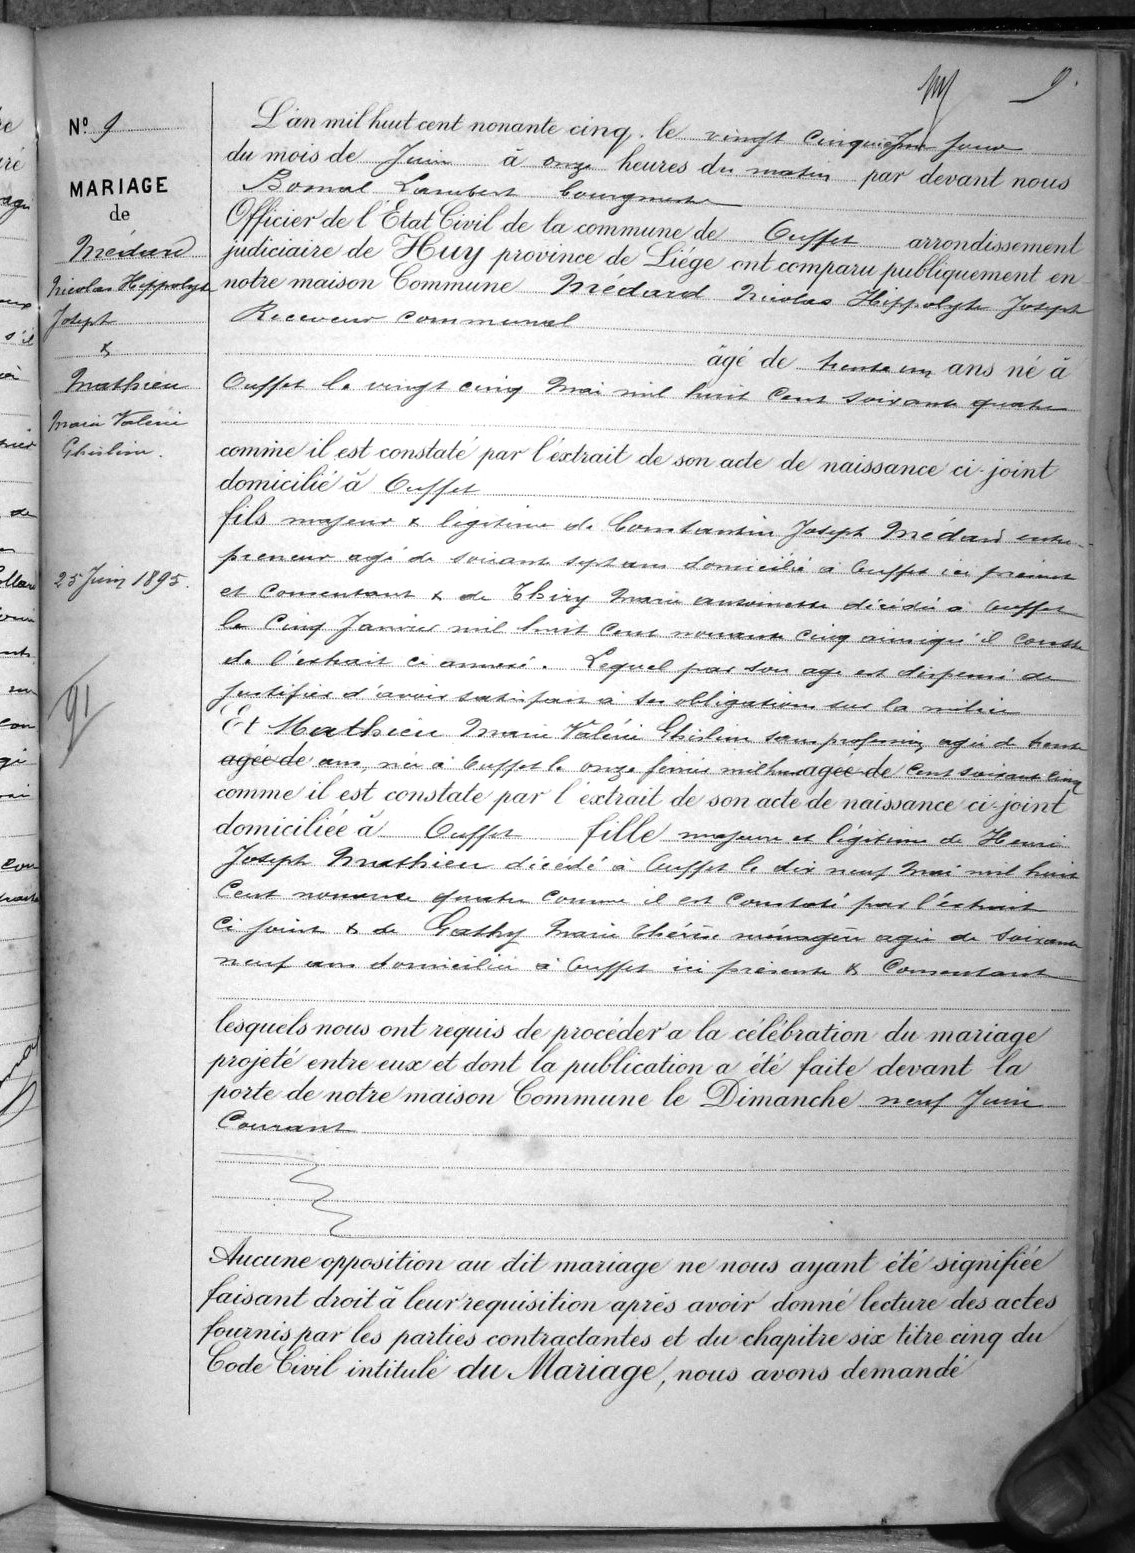 9.
Nº 9
MARIAGE
de
Médard
Nicolas Hippolyte
Joseph
&
Mathieu
Marie Valérie
Ghisline.
25 Juin 1895.
91
L'an mil huit cent nonante cinq. le vingt cinquième jour
du mois de Juin à onze heures du matin par devant nous
Bomal Lambert bourgmestre
Officier de l'Etat Civil de la commune de Ouffet arrondissement
judiciaire de Huy province de Liége ont comparu publiquement en
notre maison Commune Médard Nicolas Hippolyte Joseph
Receveur communal
âgé de trente un ans né à
Ouffet le vingt cinq Mai mil huit cent soixante quatre
comme il est constaté par l'extrait de son acte de naissance ci-joint
domicilié à Ouffet
fils majeur & légitime de Constantin Joseph Médard entre-
preneur agé de soixante sept ans domicilié à Ouffet ici présent
et consentant & de Thiry Marie Antoinette décédée à Ouffet
le cinq Janvier mil huit cent nonante cinq ainsiqu'il conste
de l'extrait ci annexé. Lequel par son age est dispensé de
justifier d'avoir satisfait à ses obligations sur la milice
Et Mathieu Marie Valérie Ghisline sans profession agée de trente
agée de ans, née à Ouffet le onze février mil huit agée de cent soixante cinq
comme il est constaté par l'extrait de son acte de naissance ci-joint
domiciliée à Ouffet fille majeure et légitime de Henri
Joseph Mathieu décédé à Ouffet le dix neuf Mai mil huit
cent nonante quatre comme il est constaté par l'extrait
ci joint & de Gathy Marie Thérèse ménagère agée de soixante
neuf ans domiciliée à Ouffet ici présente & consentant
lesquels nous ont requis de procéder a la célébration du mariage
projeté entre eux et dont la publication a été faite devant la
porte de notre maison Commune le Dimanche neuf Juin
Courant
Aucune opposition au dit mariage ne nous ayant été signifiée
faisant droit à leur requisition après avoir donné lecture des actes
fournis par les parties contractantes et du chapitre six titre cinq du
Code Civil intitulé du Mariage, nous avons demandé